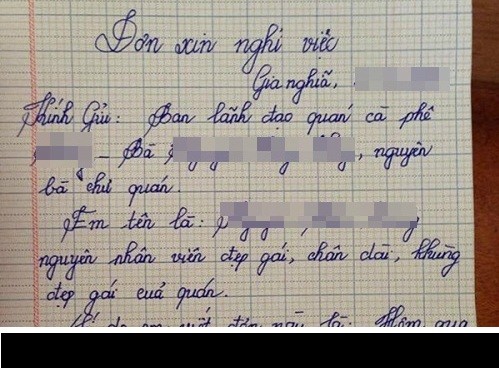 Đơn xin nghỉ việc
Gia nghĩa,
Kính Gửi: Ban lãnh đạo quán cà phê
– Bà , nguyên
bà chủ quán.
Em tên là:
nguyên nhân viên đẹp gái, chân dài, khùng
đẹp gái của quán.
Lí do em viết đơn này là: Hôm qua